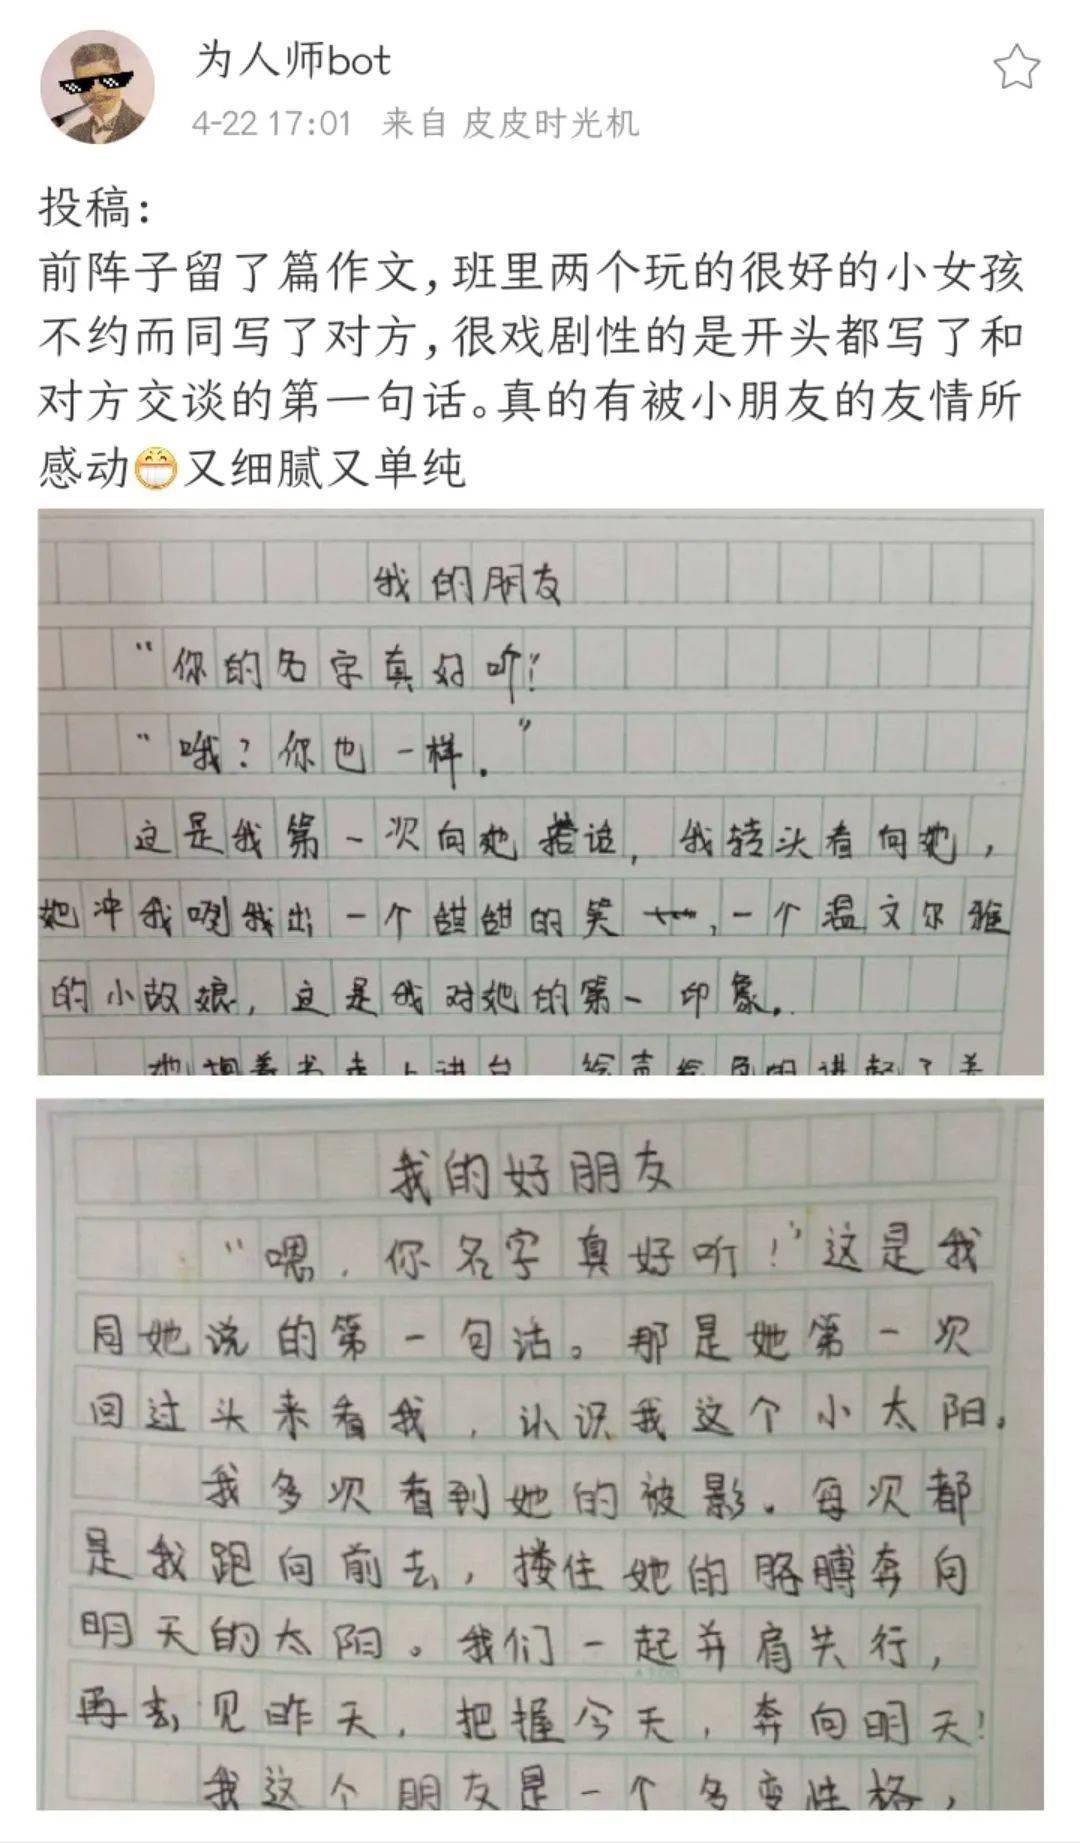 为人师bot
4-22 17:01 来自 皮皮时光机
投稿:
前阵子留了篇作文,班里两个玩的很好的小女孩
不约而同写了对方,很戏剧性的是开头都写了和
对方交谈的第一句话。真的有被小朋友的友情所
感动😁又细腻又单纯
我的朋友
“你的名字真好听!”
“哦?你也一样.”
这是我第一次向她搭话,我转头看向她,
她冲我咧我出一个甜甜的笑,一个温文尔雅
的小故娘,这是我对她的第一印象.
我的好朋友
“嗯,你名字真好听!”这是我
同她说的第一句话。那是她第一次
回过头来看我,认识我这个小太阳.
我多次看到她的被影.每次都
是我跑向前去,搂住她的胳膊奔向
明天的太阳。我们一起并肩失行,
再去见昨天,把握今天,奔向明天!
我这个朋友是一个多变性格,